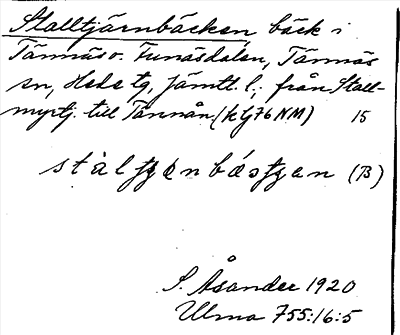 Stalltjärnbäcken bäck i
Tännäs o. Funäsdalen, Tännäs
sn, Hede tg, Jämtl. l.; från Stall-
myrtj. till Tännån (k Lj76 NM) 15
(B)
S. Åsander 1920
Ulma 755:16:5